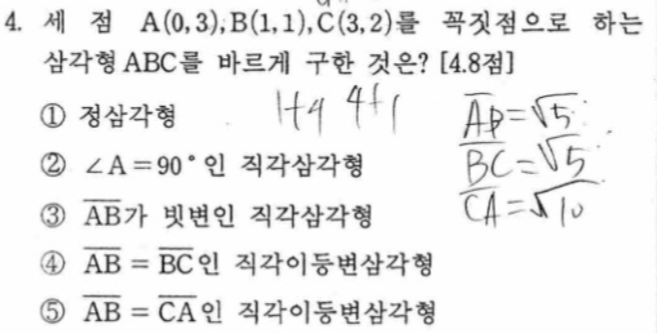 4. 세 점 A(0,3), B(1,1), C(3,2)를 꼭짓점으로 하는
삼각형 ABC를 바르게 구한 것은? [4.8점]
① 정삼각형
1+4 4+1
AB=√5
② ∠A=90°인 직각삼각형
BC=√5
③ AB가 빗변인 직각삼각형
CA=√10
④ AB = BC인 직각이등변삼각형
⑤ AB = CA인 직각이등변삼각형